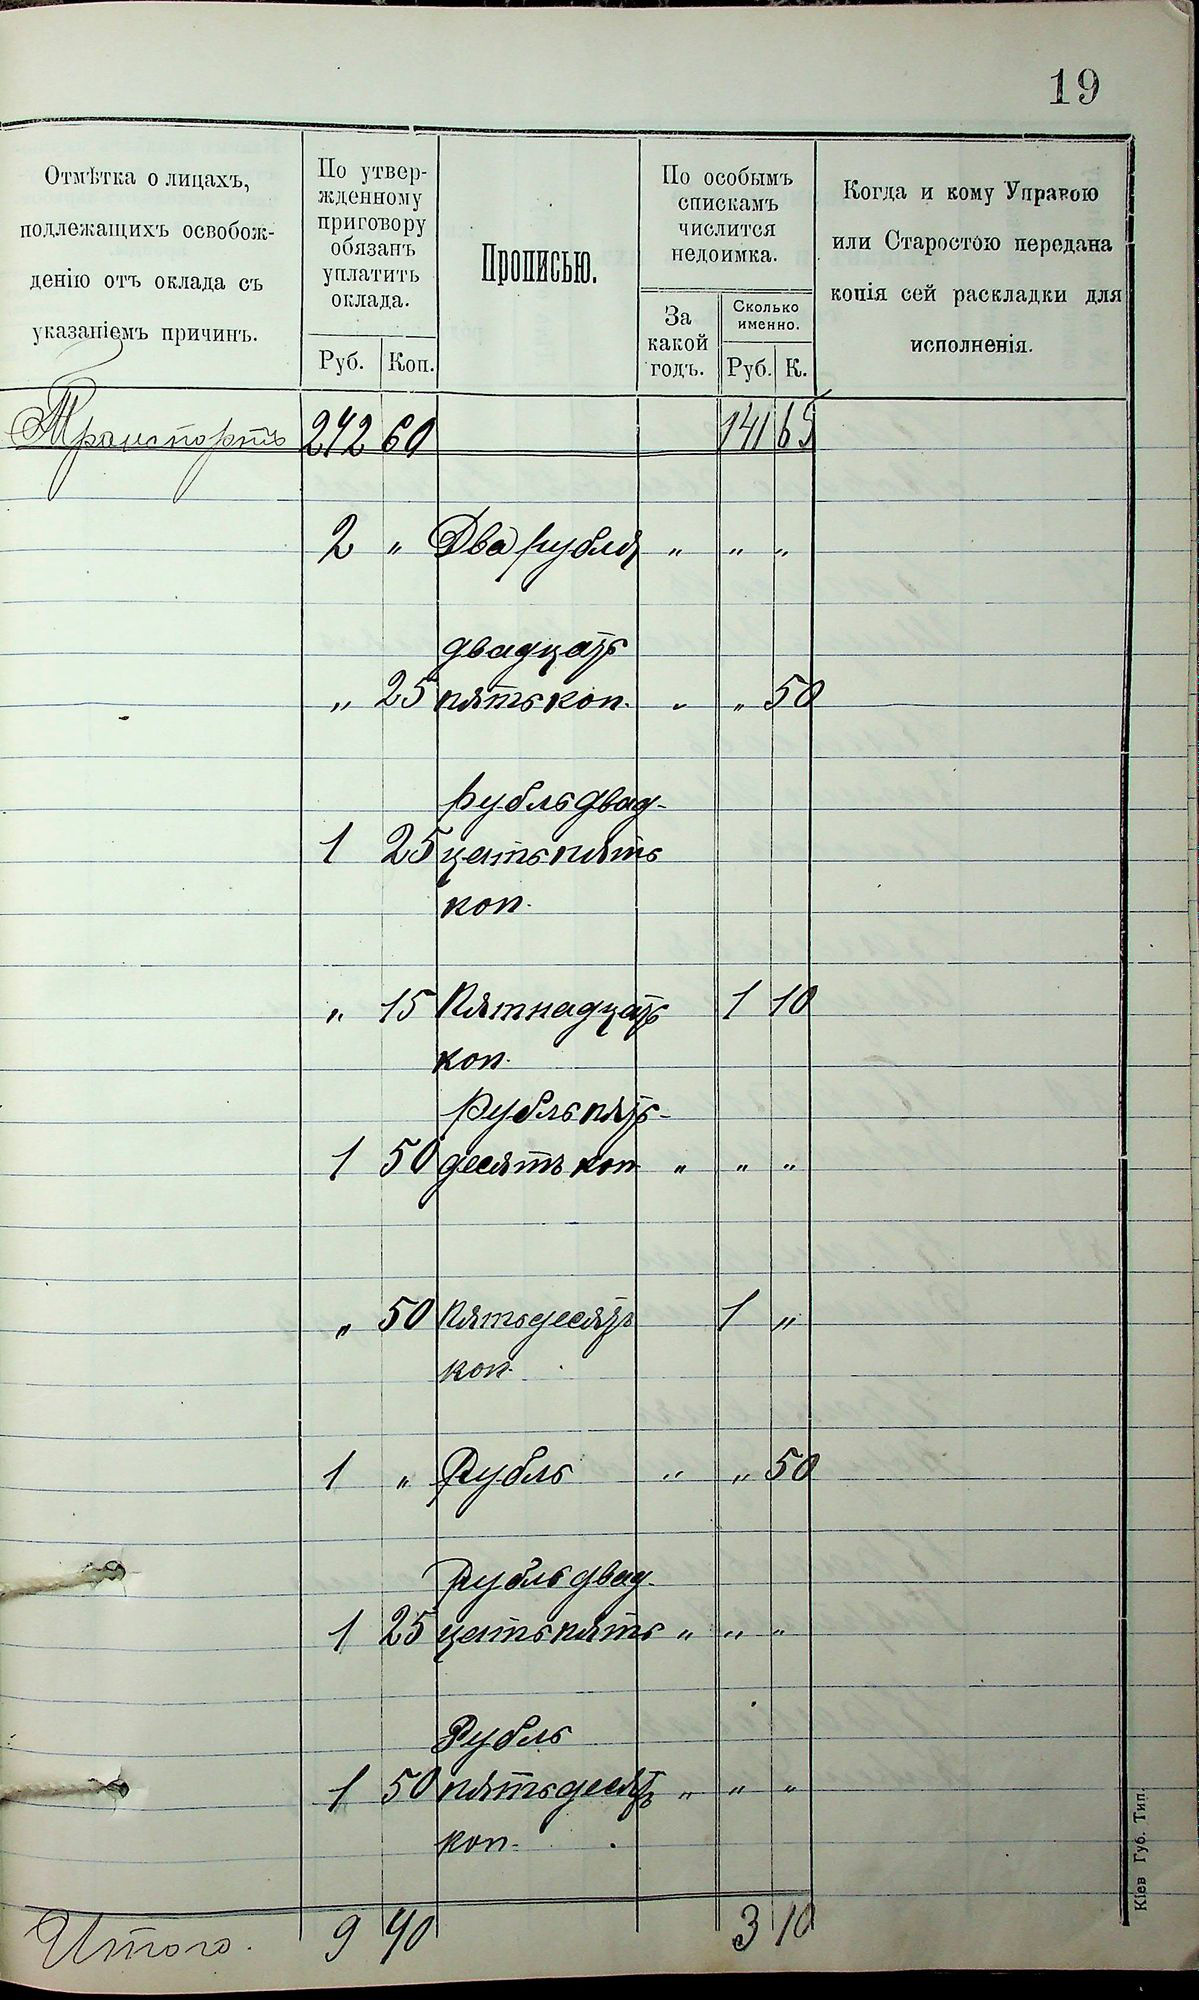 19
Отмѣтка о лицахъ,
подлежащихъ освобож-
денію отъ оклада съ
указаніемъ причинъ.
По утвер-
жденному
приговору
обязанъ
уплатить
оклада.
Руб. Коп.
Прописью.
По особымъ
спискамъ
числится
недоимка.
За
какой
годъ.
Сколько
именно.
Руб. К.
Когда и кому Управою
или Старостою передана
копія сей раскладки для
исполненія.
Транспортъ 242 60 141 65
2 „ Два рубля „ „ „
двадцать
„ 25 пять коп. „ „ 50
Рубль двад-
1 25 цать пять
коп.
„ 15 Пятнадцать 1 10
коп.
Рубль пять-
1 50 десятъ коп „ „ „
„ 50 Пятьдесятъ 1 „
коп.
1 „ Рубль „ „ 50
Рубль двад-
1 25 цать пять „ „ „
Рубль
1 50 пятьдесятъ „ „ „
коп.
Итого. 9 40 3 10
Кіев Губ. Тип.